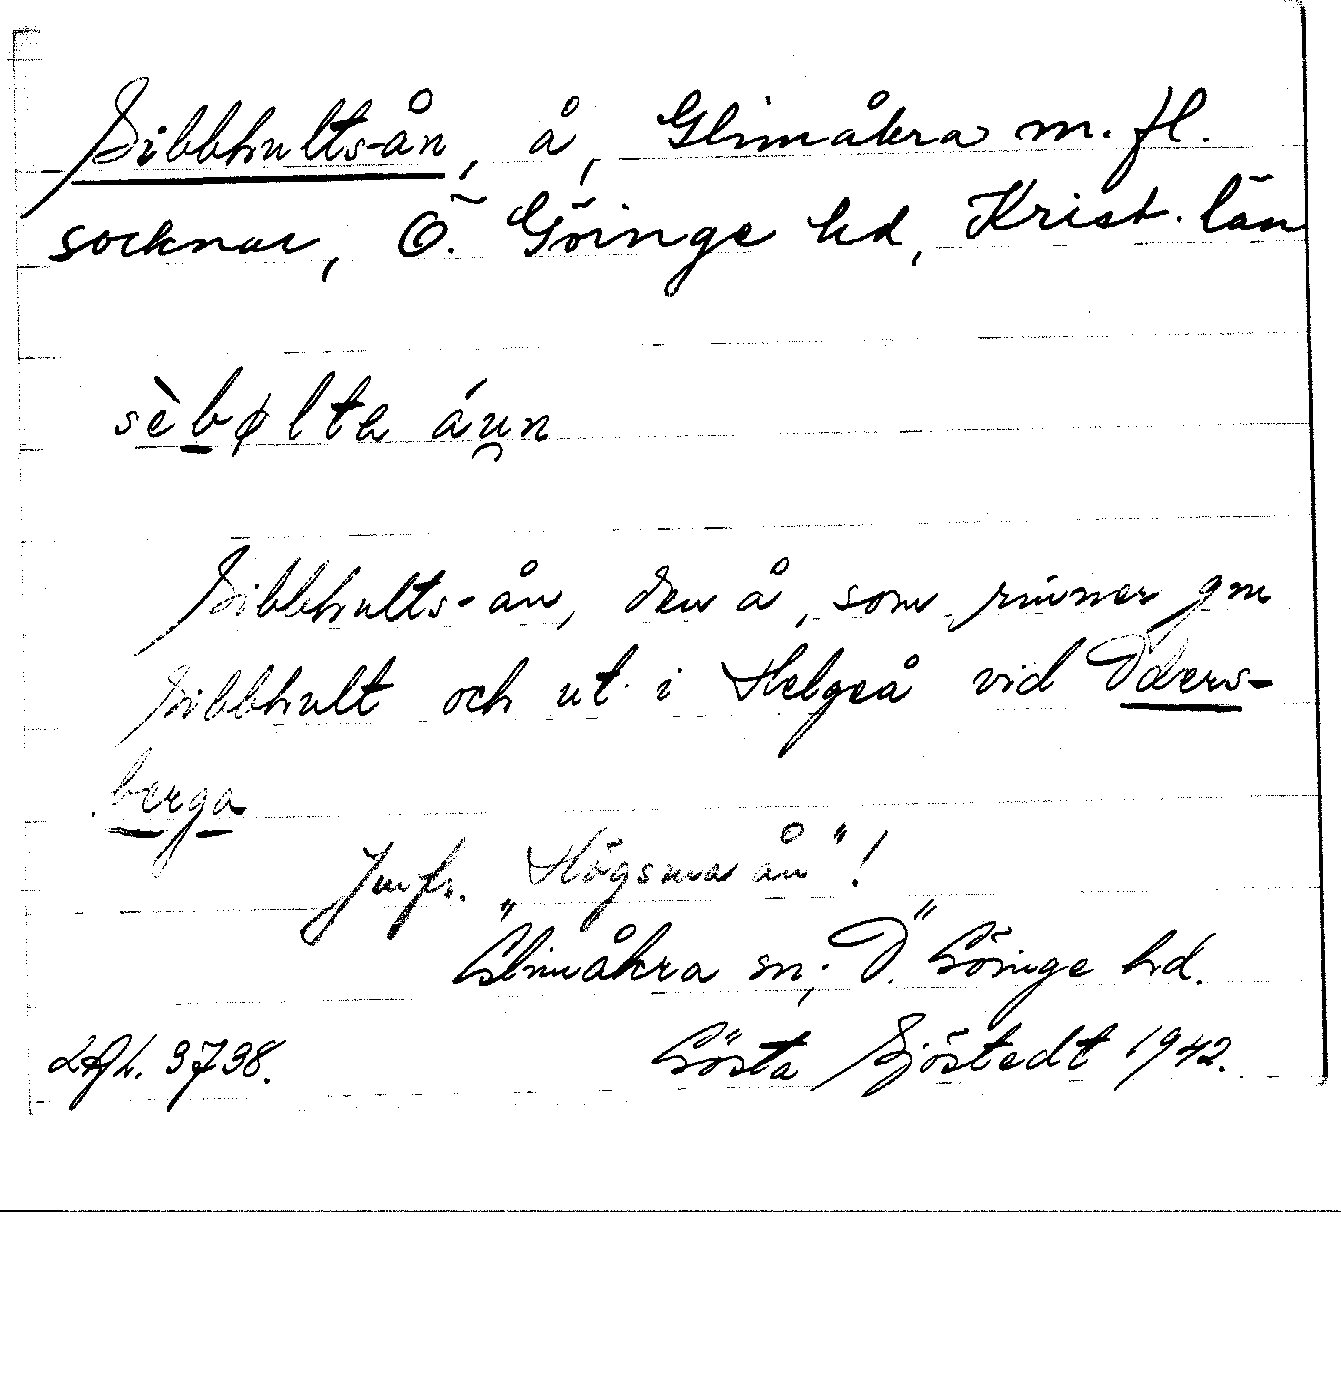 Sibbhults-ån, å, Glimåkra m. fl.
socknar, Ö. Göinge hd, Krist. län
sèbølta áu̯n
Sibbhults-ån, den å, som rinner gm
Sibbhult och ut i Helgeå vid Oders-
berga
Jmfr. "Högsma ån"!
Glimåkra sn, Ö. Göinge hd.
3738. Gösta Sjöstedt 1942.